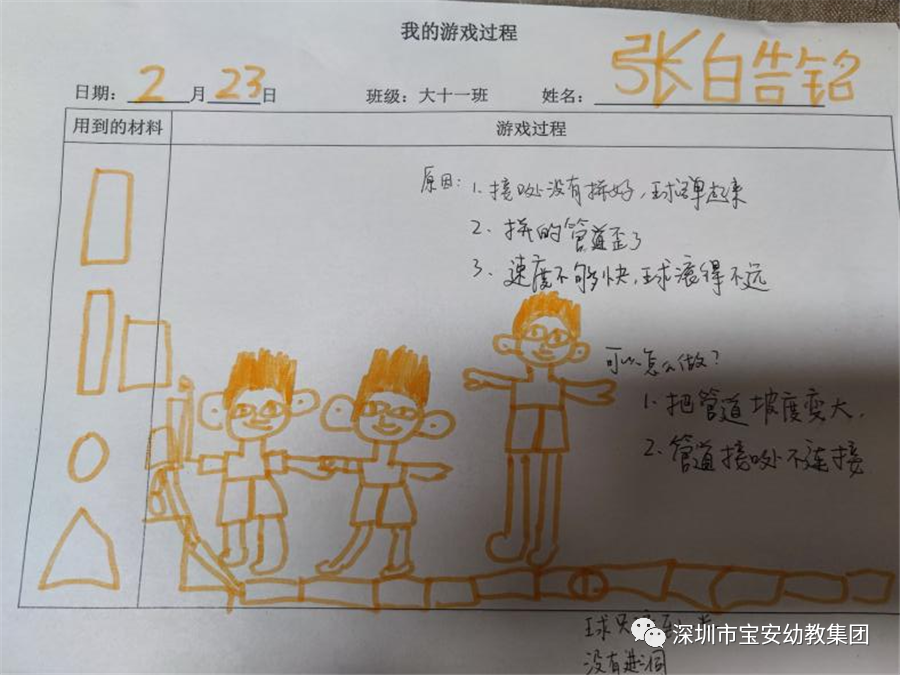 我的游戏过程
日期：2月23日 班级：大十一班 姓名：张白告铭
用到的材料 游戏过程
原因：1. 接口处没有拼好，球会弹起来
2. 拼的管道歪了
3. 速度不够快，球滚得不远
可以怎么做？
1. 把管道坡度变大，
2. 管道接口处不连接
球只
没有进洞
深圳市宝安幼教集团